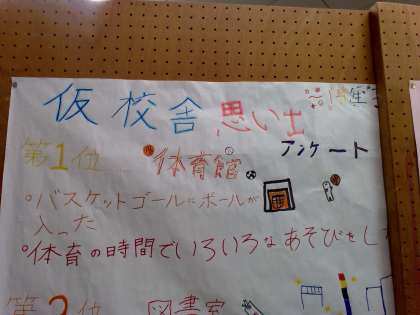 仮校舎思い出
アンケート
第1位 体育館
°バスケットゴールにボールが
入った
°体育の時間でいろいろなあそびをし
第2位 図書室